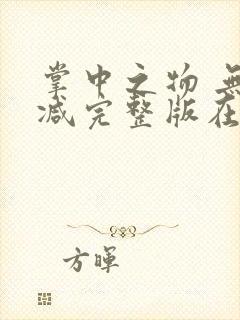 掌中之物 無
减完整版在
方暉